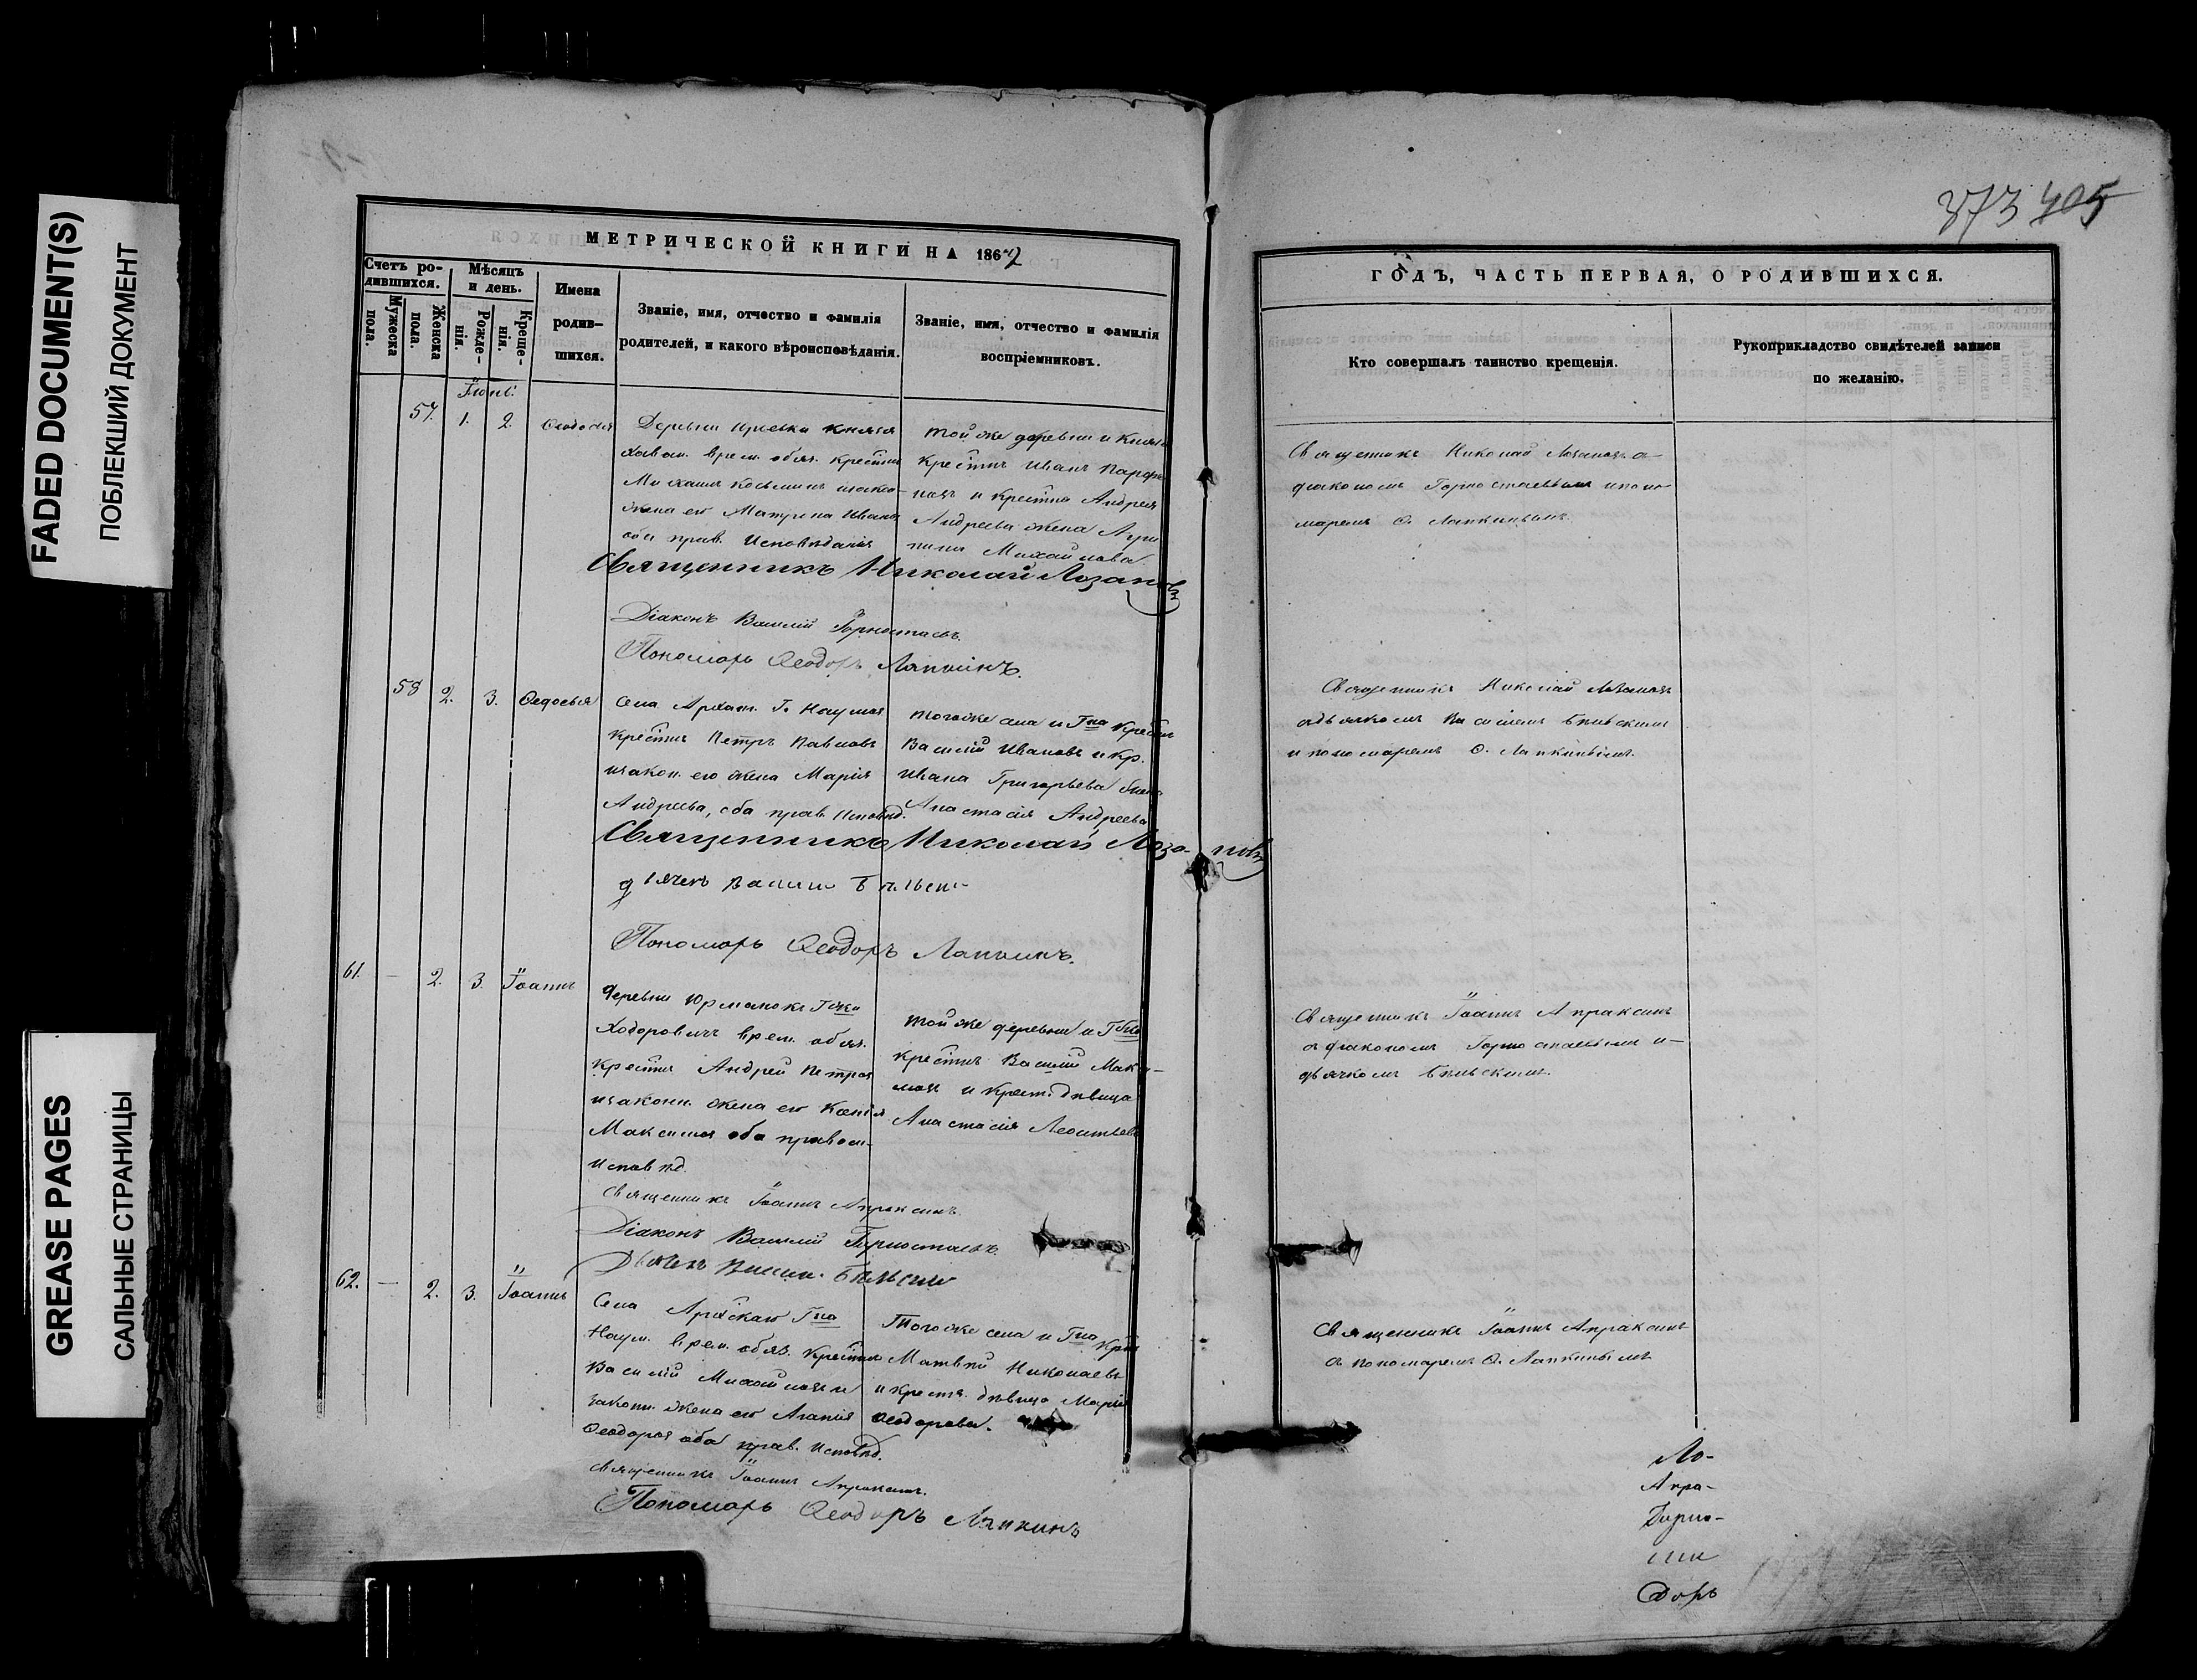 FADED DOCUMENT(S)
ПОБЛЕКШИЙ ДОКУМЕНТ
GREASE PAGES
САЛЬНЫЕ СТРАНИЦЫ
МЕТРИЧЕСКОЙ КНИГИ НА 1862
Счетъ ро-
дившихся.
Мужеска
пола.
Женска
пола.
Мѣсяцъ
и день.
Рожде-
нія.
Креще-
нія.
Имена
родив-
шихся.
Званіе, имя, отчество и фамилія
родителей, и какого вѣроисповѣданія.
Званіе, имя, отчество и фамилія
воспріемниковъ.
Іюнь.
57. 1. 2. Ѳеодосія
Деревни князя
врем. обяз. крестин
Михаилъ Косьминъ
жена его Матрона Иванова
оба прав. Исповѣданія
Той же деревни и Князя
крестнъ Иванъ
и крестна Андрея
Андреева жена
Михайлова
Священникъ Николай Лозановъ
Діаконъ Василій Горностаевъ.
Пономарь Ѳеодоръ Лапкинъ.
58 2. 3. Ѳедосья
Села Г. Наумова
крестнъ Петръ Павловъ
и закон. его жена Марія
Андреева, оба прав. Исповѣд.
Того же села и Гна крестнъ
Василій Ивановъ и кр.
Ивана Григорьева жена
Анастасія Андреева
Священникъ Николай Лозановъ
Дьячекъ Василій
Пономарь Ѳеодоръ Лапкинъ.
61. — 2. 3. Іоаннъ
Деревни
врем. обяз.
крестнъ Андрей Петровъ
и законн. жена его Ксенія
Максимова оба правосл.
Исповѣд.
Той же деревни и Гжи
крестнъ Василій Макси-
мовъ и крест. дѣвица
Анастасія Леонтьева
Священникъ Іоаннъ Апраксинъ.
Діаконъ Василій Горностаевъ.
Дьячекъ
62. — 2. 3. Іоаннъ
Села Гна
Наум. врем. обяз. крестнъ
Василій Михайловъ и
законн. жена его Агапія
Ѳеодорова оба прав. Исповѣд.
Того же села и Гна Крнъ
Матвѣй Николаевъ
и крестн. дѣвица Марія
Ѳеодорова.
Священникъ Іоаннъ Апраксинъ.
Пономарь Ѳеодоръ Лапкинъ
373 405
ГОДЪ, ЧАСТЬ ПЕРВАЯ, О РОДИВШИХСЯ.
Кто совершалъ таинство крещенія.
Рукоприкладство свидѣтелей записи
по желанію.
Священникъ Николай Лозановъ с
діакономъ Горностаевымъ и поно-
маремъ Ѳ. Лапкинымъ.
Священникъ Николай Лозановъ
съ дьячкомъ Бѣльскимъ
и пономаремъ Ѳ. Лапкинымъ.
Священникъ Іоаннъ Апраксинъ
съ діакономъ Горностаевымъ и
дьячкомъ Бѣльскимъ.
Священникъ Іоаннъ Апраксинъ
съ пономаремъ Ѳ. Лапкинымъ
Ло-
Апра-
Горно-
доръ